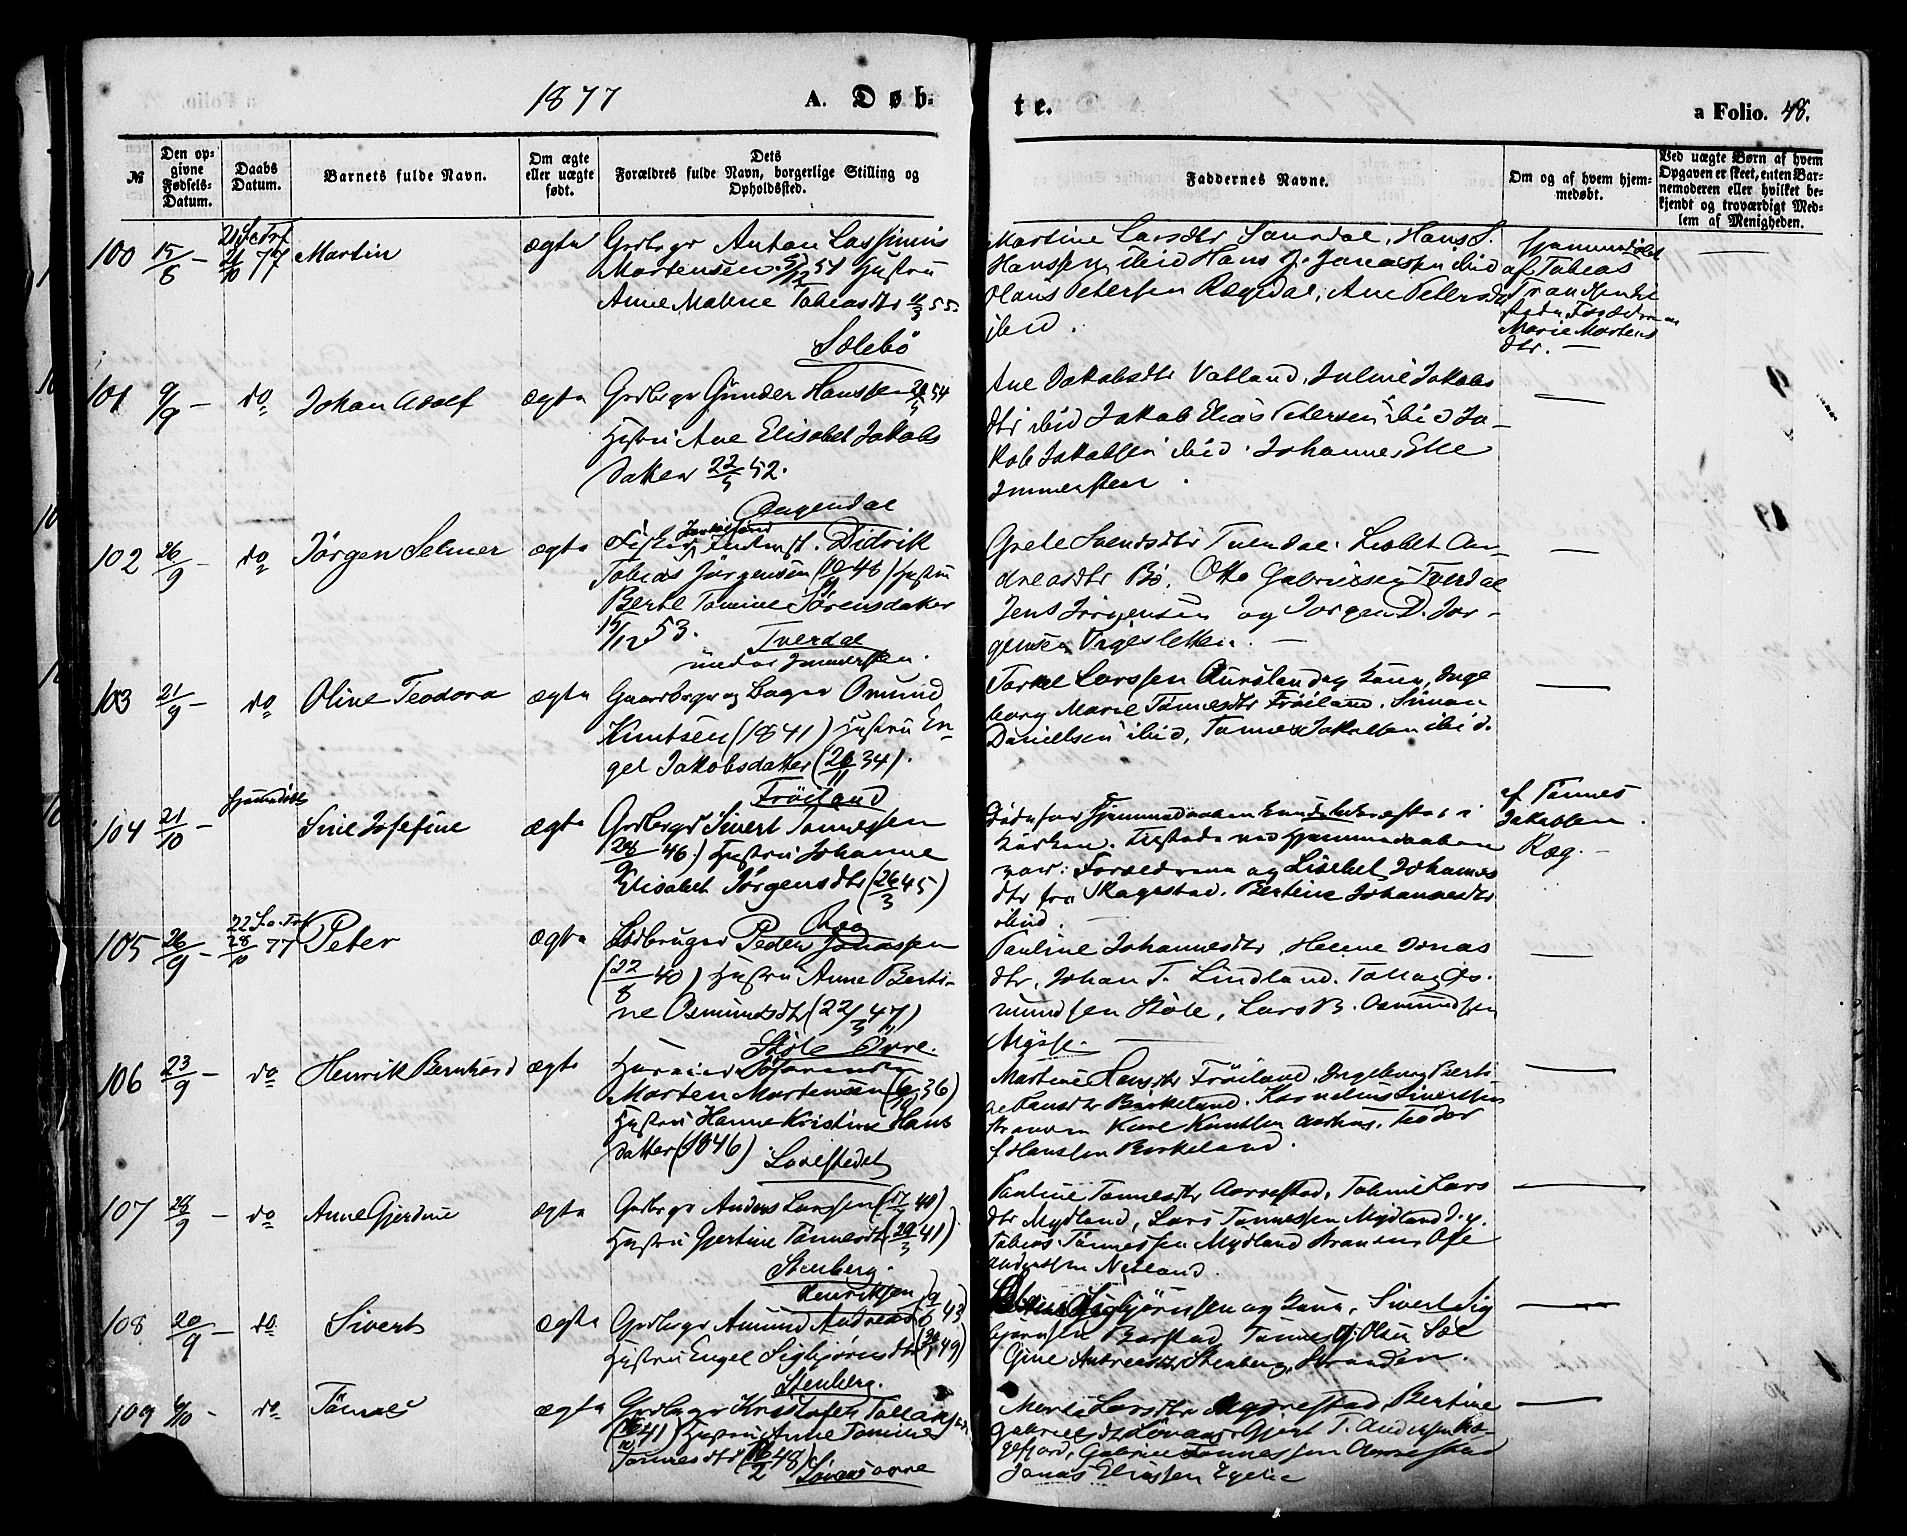 1877 A. Døb-
te. a Folio. 48.
№
Den op-
givne
Fødsels-
Datum.
Daabs
Datum.
Barnets fulde Navn.
Om ægte
eller uægte
født.
Dets
Forældres fulde Navn, borgerlige Stilling og
Opholdssted.
Faddernes Navne.
Om og af hvem hjem-
medøbt.
Ved uægte Børn af hvem
Opgaven er skeet, enten Bar-
nemoderen eller hvilket be-
kjendt og troværdigt Med-
lem af Menigheden.
100 15/6 21 S e Tref 21/10 77 Martin ægte Grdbrgr Anton Lassinius
Mortensen 54 Hustru
Anne Malene Tobiasdtr 55
Sælebø
Martine Larsdtr Hans S.
Hanssen ibid Hans J. Jonassen ibid
Olaus Petersen Rægedal, Ane Petersdtr
ibid.
Hjemmedøbt
af Tobias
Forældrene
Marie Mortens
dtr. —
101 9/9 — do Johan Adolf ægte Grdbrgr Gunder Hanssen 54
Hustru Ane Elisabet Jakobs
datter 22/5 52.
Aagendal
Ane Jakobsdtr Vatland, Juline Jakobs
dtr ibid Jakob Elias Petersen ibid Ja-
kob Jakobsen ibid. Johannes Elle
Immersten.
—
102 26/9 — do Jørgen Selmer ægte Fisker Didrik
Tobias Jørgensen (48) Hustru
Berte Tomine Sørensdatter
15/12 53.
Tverdal
under Immersten.
Grete Svendsdtr Tverdal. Lisbet An-
dreasdtr Bø. Otto Gabrielsen Tverdal
Jens Jørgensen og Jørgen D. Jør-
gensen
—
103 21/9 — do Oline Teodora ægte Gaardbrgr og Bager Omund
Knutsen (1841) Hustru En-
gel Jakobsdatter (26/11 34).
Frøiland
Torkel Larssen og Kone, Inge
borg Marie Tønnesdtr Frøiland. Simon
Danielsen ibid, Tønnes Jakobsen ibid.
—
104 21/10 — Hjemmedøbt Sine Josefine ægte Grdbrgr Sivert Tønnessen
(28/9 46) Hustru Johanne
Elisabet Jørgensdtr (26/3 45)
Ræg
Døde før Hjemmedaaben kunde bekræftes i
Kirken. Tilstede ved Hjemmedaaben
var: Forældrene og Lisebet Johannes
dtr fra Skagestad. Bertine Johannesdtr
ibid.
af Tønnes
Jakobsen.
Ræg. —
105 26/9 — 22 S. e. Tref 28/10 77 Peter ægte Grdbruger Peder Jonassen
(22/8 40) Hustru Anne Berti-
ne Osmundsdtr (22/3 47)
Støle Øvre.
Pauline Johannesdtr, Helene Jonas
dtr, Johan T. Lindland. Tollag Os-
mundsen Støle, Lars B. Osmundsen
Mysse. —
—
106 23/9 — do Henrik Bernhard ægte
Morten Mortensen (6/10 36)
Hustru Hanne Kristine Hans
datter (1846)
Ladestedet
Martine Hansdtr Frøiland, Ingeborg Berti
ne Hansdtr Birkeland. Kornelius Sivertsen
Stranden Karl Knutsen Aarhus, Teodor
Hanssen Birkeland.
—
107 28/9 — do Anne Gjerdine ægte Grdbrgr Anders Larssen (40)
Hustru Gjertine Tønnesdtr (29/3 41)
Stenberg.
Pauline Tønnesdtr Aarrestad, Tomine Lars
dtr Mydland, Lars Tønnessen Mydland d. y.
Tobias Tønnessen Mydland Stranden
Anderssen Netland.
—
108 20/9 — do Sivert ægte Henriksen
Grdbrgr Amund Andreas (9/6 43)
Hustru Engel Sigbjørnsdtr (49)
Stenberg.
Sigbjørnsen og Kone, Sivert Sig
bjørnsen Barstad, Tønnes Olsen Sæl
Gine Andreasdtr Stenberg, Stranden.
—
109 6/10 — do Tønnes ægte Grdbrgr Kristofer Tollaksen
(41) Hustru Anne Tomine
Tønnesdtr (16/2 48)
Marte Larsdtr Bertine
Gabrielsdtr Gjert T. Andersen
Gabriel Tønnessen Aarrestad
Jonas Eliassen Egelie
—